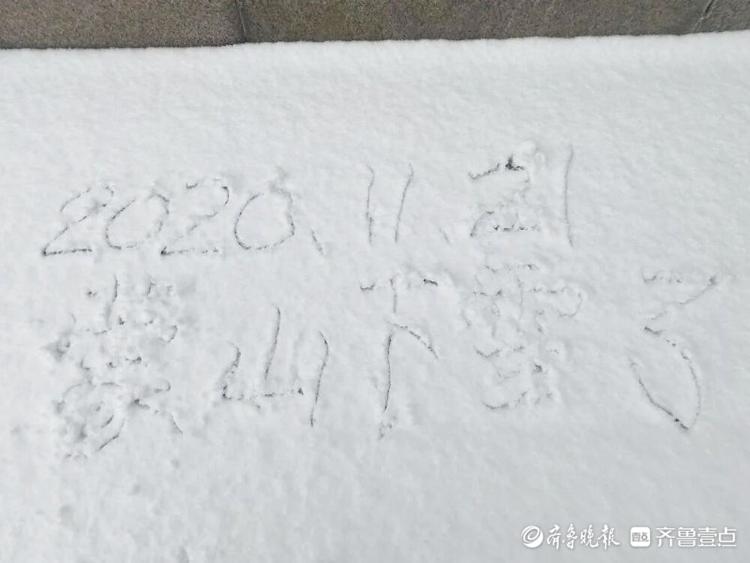 2020、11、21
蒙山下雪了
齐鲁晚报 壹点 齐鲁壹点